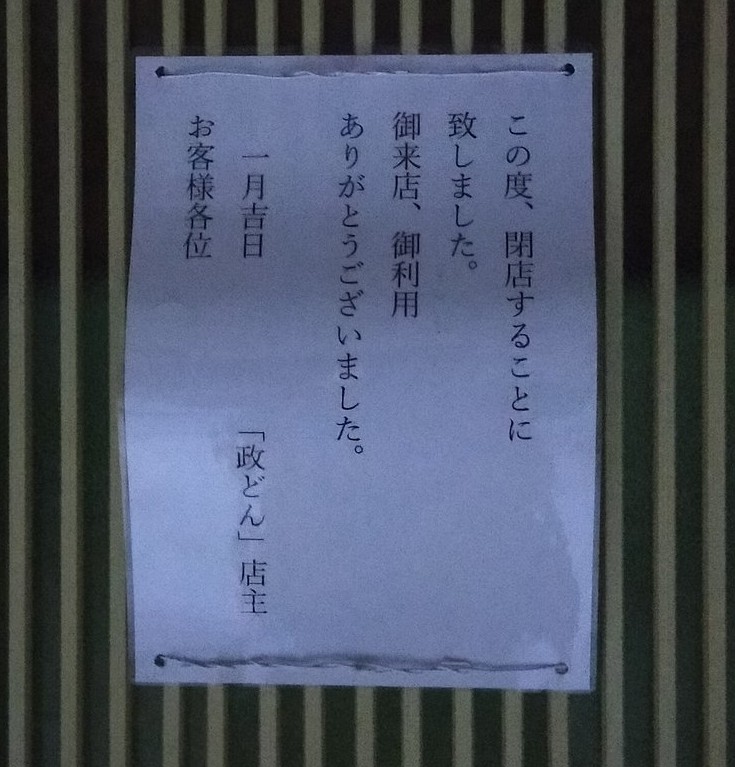 この度、閉店することに
致しました。
御来店、御利用
ありがとうございました。
一月吉日 「政どん」店主
お客様各位